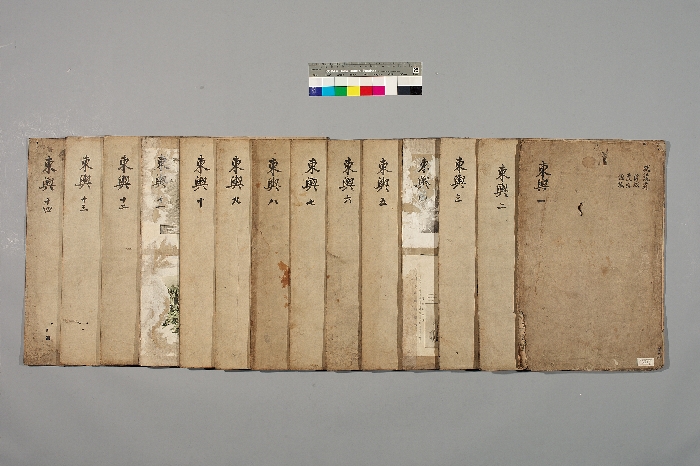 東輿 一
東輿 二
東輿 三
東輿 四
東輿 五
東輿 六
東輿 七
東輿 八
東輿 九
東輿 十
東輿 十一
東輿 十二
東輿 十三
東輿 十四